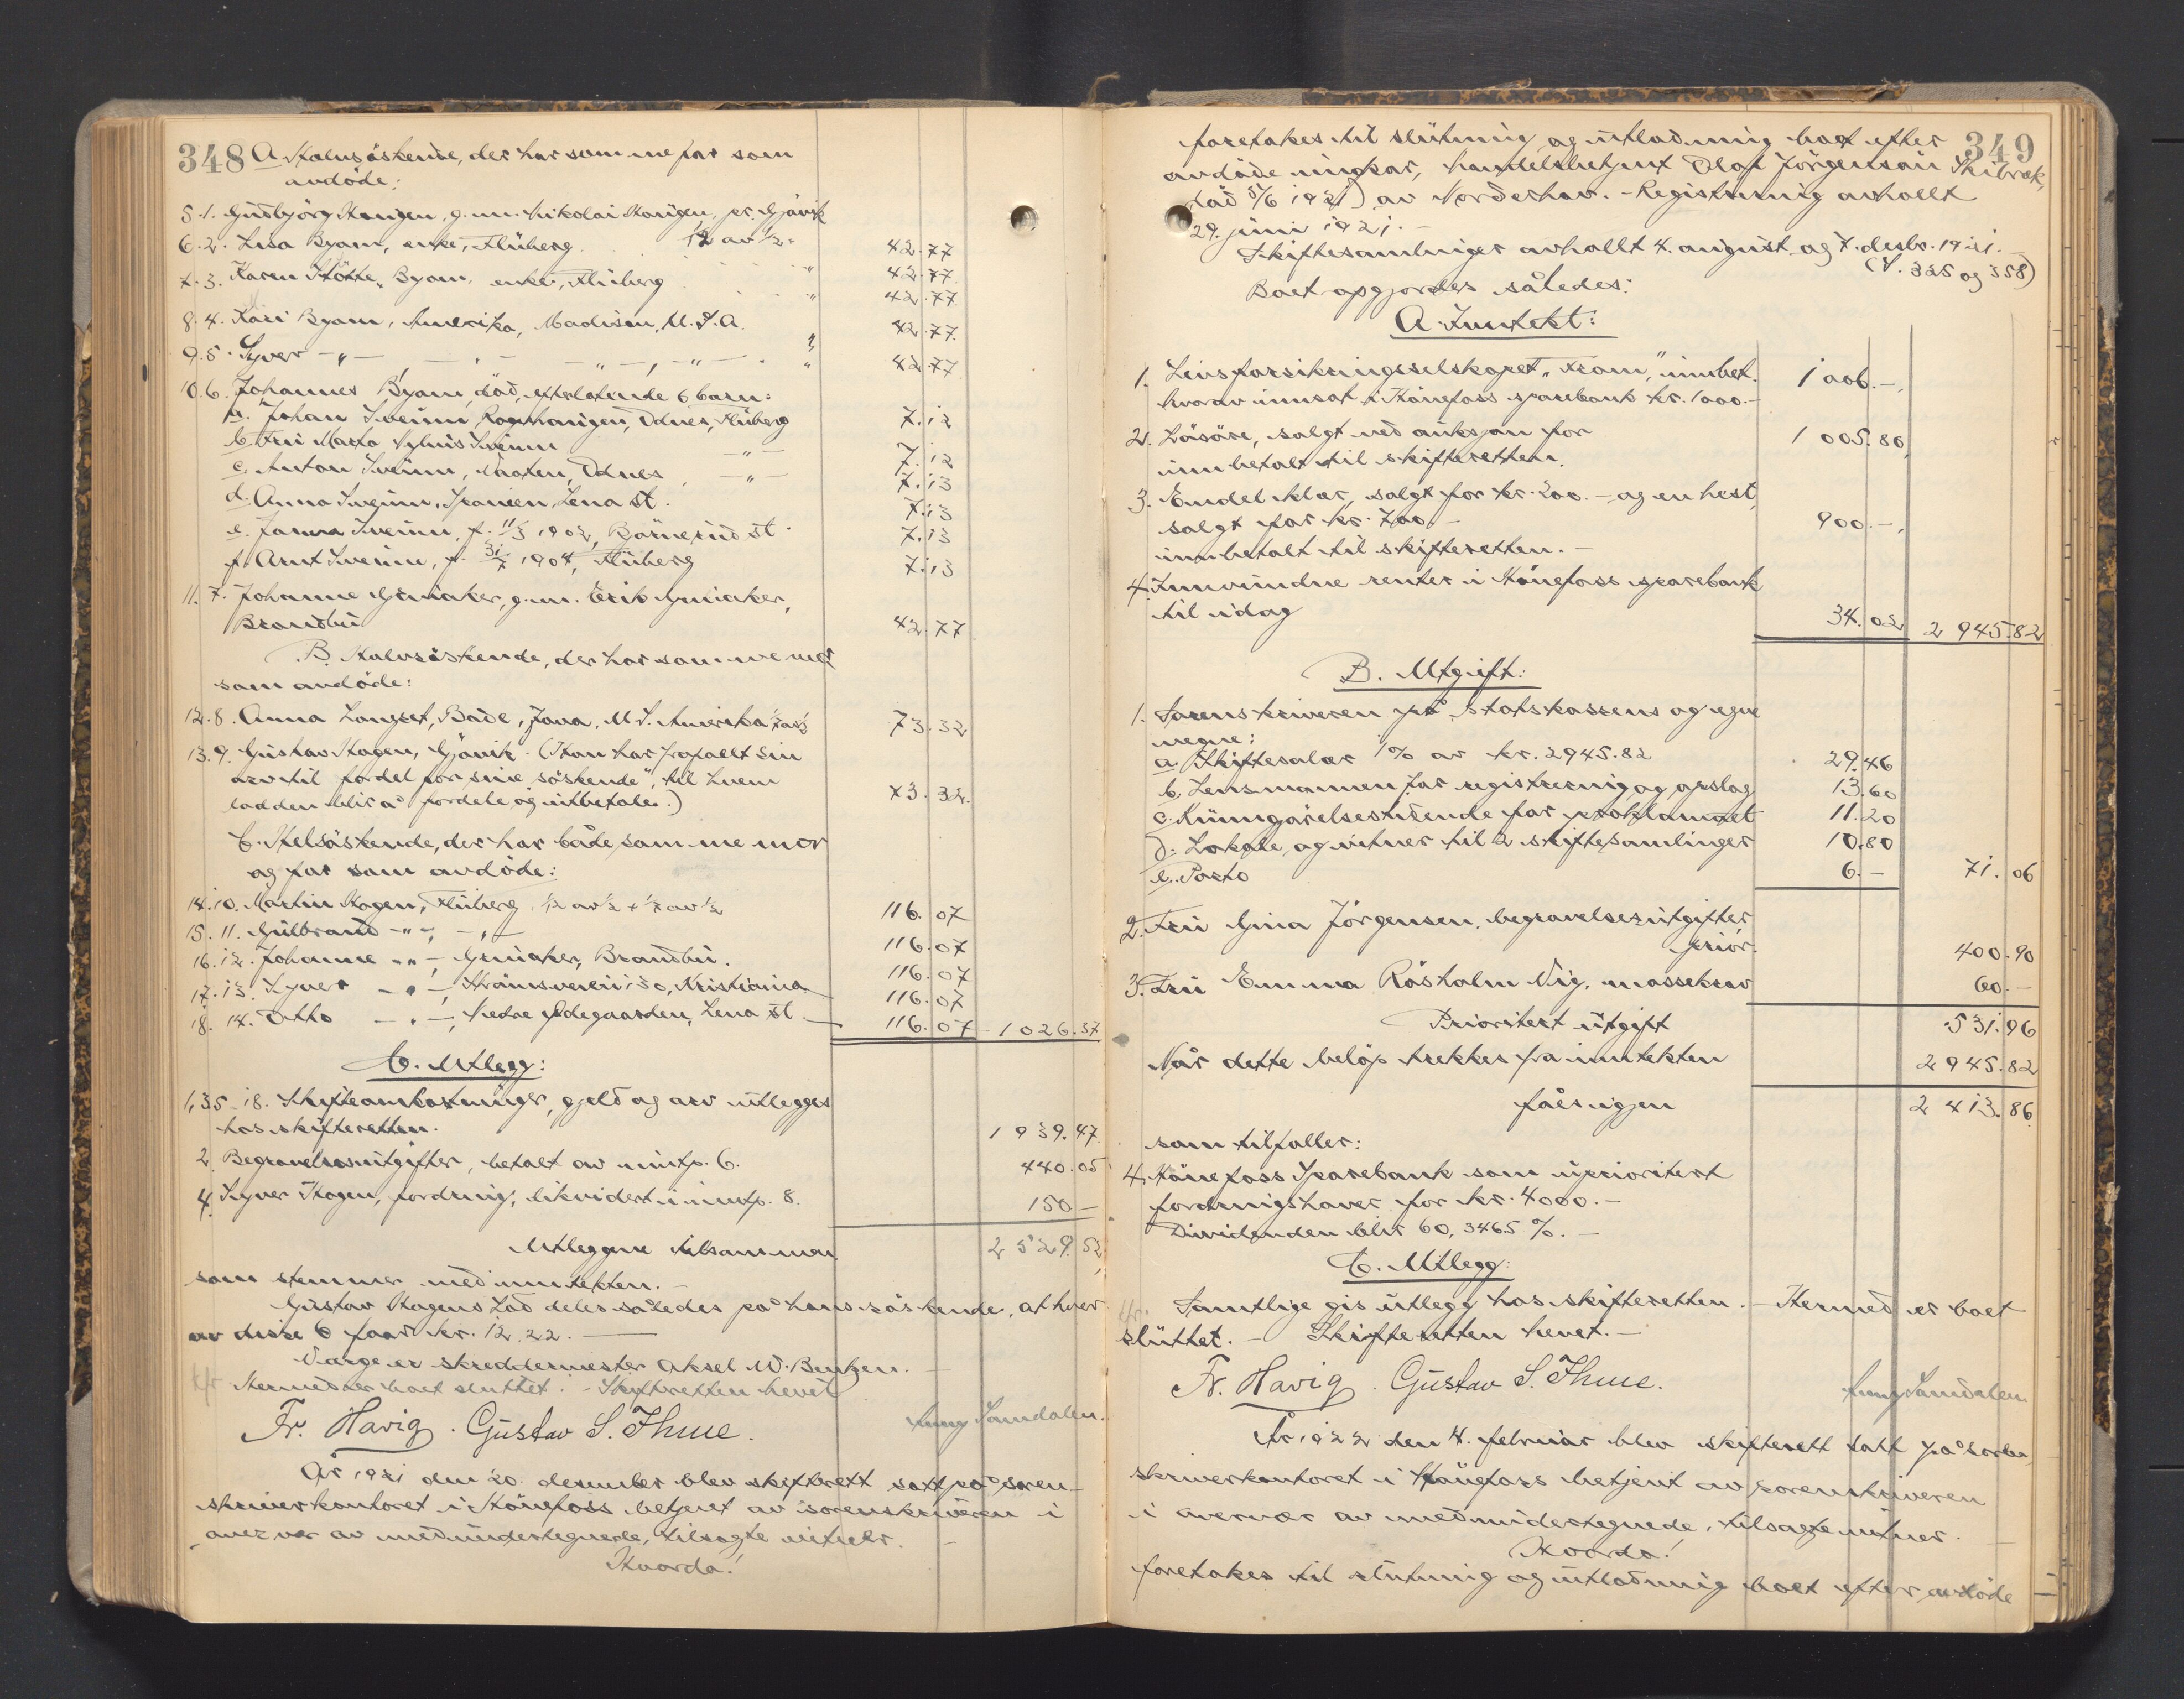 348
A. Halvsöskende, der har samme far som
avdöde:
5.1. Gudbjörg Haugen, g.m. Nikolai Haugen, pr. Gjövik
6.2. Lisa Byom, enke, Fluberg. 1/12 av 1/2. 42.77
7.3. Karen Byom, enke, Fluberg " 42.77
42.77
8.4. Kari Byom, Amerika, Madison, U.S.A. " 42.77
9.5. Syver -"- " 42.77
10.6. Johannes Byom, död, efterlatende 6 barn:
a. Johan Sveum, Odnes, Fluberg 7.12
b. Fru Marta Sveum -"- 7.12
c. Anton Sveum, Odnes -"- 7.13
d. Anna Sveum, Lena st. 7.13
e. Sveum, f. 11/3 1902, st. 7.13
f. Arnt Sveum, f. 31/7 1904, Fluberg 7.13
11.7. Johanne Gmiaker, g.m. Erik Gmiaker,
Brandbu 42.77
B. Halvsöskende, der har samme mor
som avdöde:
12.8. Anna Langset, Bade, Jova, U.S. Amerika 1/7 av 1/2 73.32
13.9. Gustav Hagen, Gjövik. (Han har frafallt sin
arv til fordel for sine söskende, til hvem
lodden blir å fordele og utbetale.) 73.32.
C. Helsöskende, der har både samme mor
og far som avdöde:
14.10. Martin Hagen, Fluberg 1/12 av 1/2 + 1/7 av 1/2 116.07
15.11. Gulbrand -"-, -"- 116.07
16.12. Johanne -"-, Gmiaker, Brandbu. 116.07
17.13. Syver -"-, 130, Kristiania 116.07
18.14. Otto -"-, Nedre Ödegaarden, Lena st. 116.07 1026.37
C. Utlegg:
1, 3, 5-18. Skifteomkostninger, gjeld og arv utlegges
hos skifteretten. 1939.47.
2. Begravelsesutgifter, betalt av inntp. 6. 440.05
4. Syver Hagen, fordring, likvidert i inntp. 8. 150.-
Utleggene tilsammen 2529.52,
som stemmer med inntekten.-
Gustav Hagens lod deles således på hans söskende, at hver
av disse 6 faar kr. 12.22.
Verge er skreddermester Aksel W. Bentzen.
Hermed er boet sluttet. - Skifteretten hevet
Fr. Havig. Gustav S. Thue.
År 1921 den 20. desember blev skifterett satt på soren-
skriverkontoret i Hönefoss betjent av sorenskriveren i
overvær av medundertegnede, tilsagte vitner. -
Hvorda!
349
foretakes til slutning og utlodning boet efter
avdöde ungkar, handelsbetjent Olaf Jörgensön Skibrek,
död 5/6 1921) av Norderhov. - Registrering avhollt
29. juni 1921. -
Skiftesamlinger avhollt 4. august og 7. desbr. 1921.
(S. 325 og 358)
Boet opgjordes således:
A. Inntekt:
1. Livsforsikringsselskapet "Fram", innbet. 1006.-,
hvorav innsat i Hönefoss sparebank kr. 1000.-
2. Lösöre, solgt ved auksjon for 1005.80,
innbetalt til skifteretten.
3. Endel klær, solgt for kr. 200.-, og en hest,
solgt for kr. 700.- 900.-,
innbetalt til skifteretten. -
4. Innvundne renter i Hönefoss sparebank
til idag 34.02 2945.82
B. Utgift:
1. Sorenskriveren på statskassens og egne
vegne:
a. Skiftesalær 1% av kr. 2945.82 29.46
b. Lensmannen for registrering og opslag 13.60
c. Kunngjörelsestidende for proklamaet 11.20
d. Lokale og vitner til 2 skiftesamlinger 10.80
e. Porto 6.- 71.06
2. Fru Gina Jörgensen, begravelsesutgifter
prior. 400.90
3. Fru Emma Råsholm Vig, massekrav 60.-
Prioritert utgift 531.96
Når dette belöp trekkes fra inntekten 2945.82
fåes igjen 2413.86
som tilfaller:
4. Hönefoss Sparebank som uprioritert
fordringshaver for kr. 4000.-
Dividenden blir 60,3465 %. -
C. Utlegg:
Samtlige gis utlegg hos skifteretten. - Hermed er boet
sluttet. - Skifteretten hevet. -
Fr. Havig. Gustav S. Thue.
År 1922 den 4. februar blev skifterett satt på soren-
skriverkontoret i Hönefoss betjent av sorenskriveren
i overvær av medundertegnede, tilsagte vitner. -
Hvorda!
foretakes til slutning og utlodning boet efter avdöde